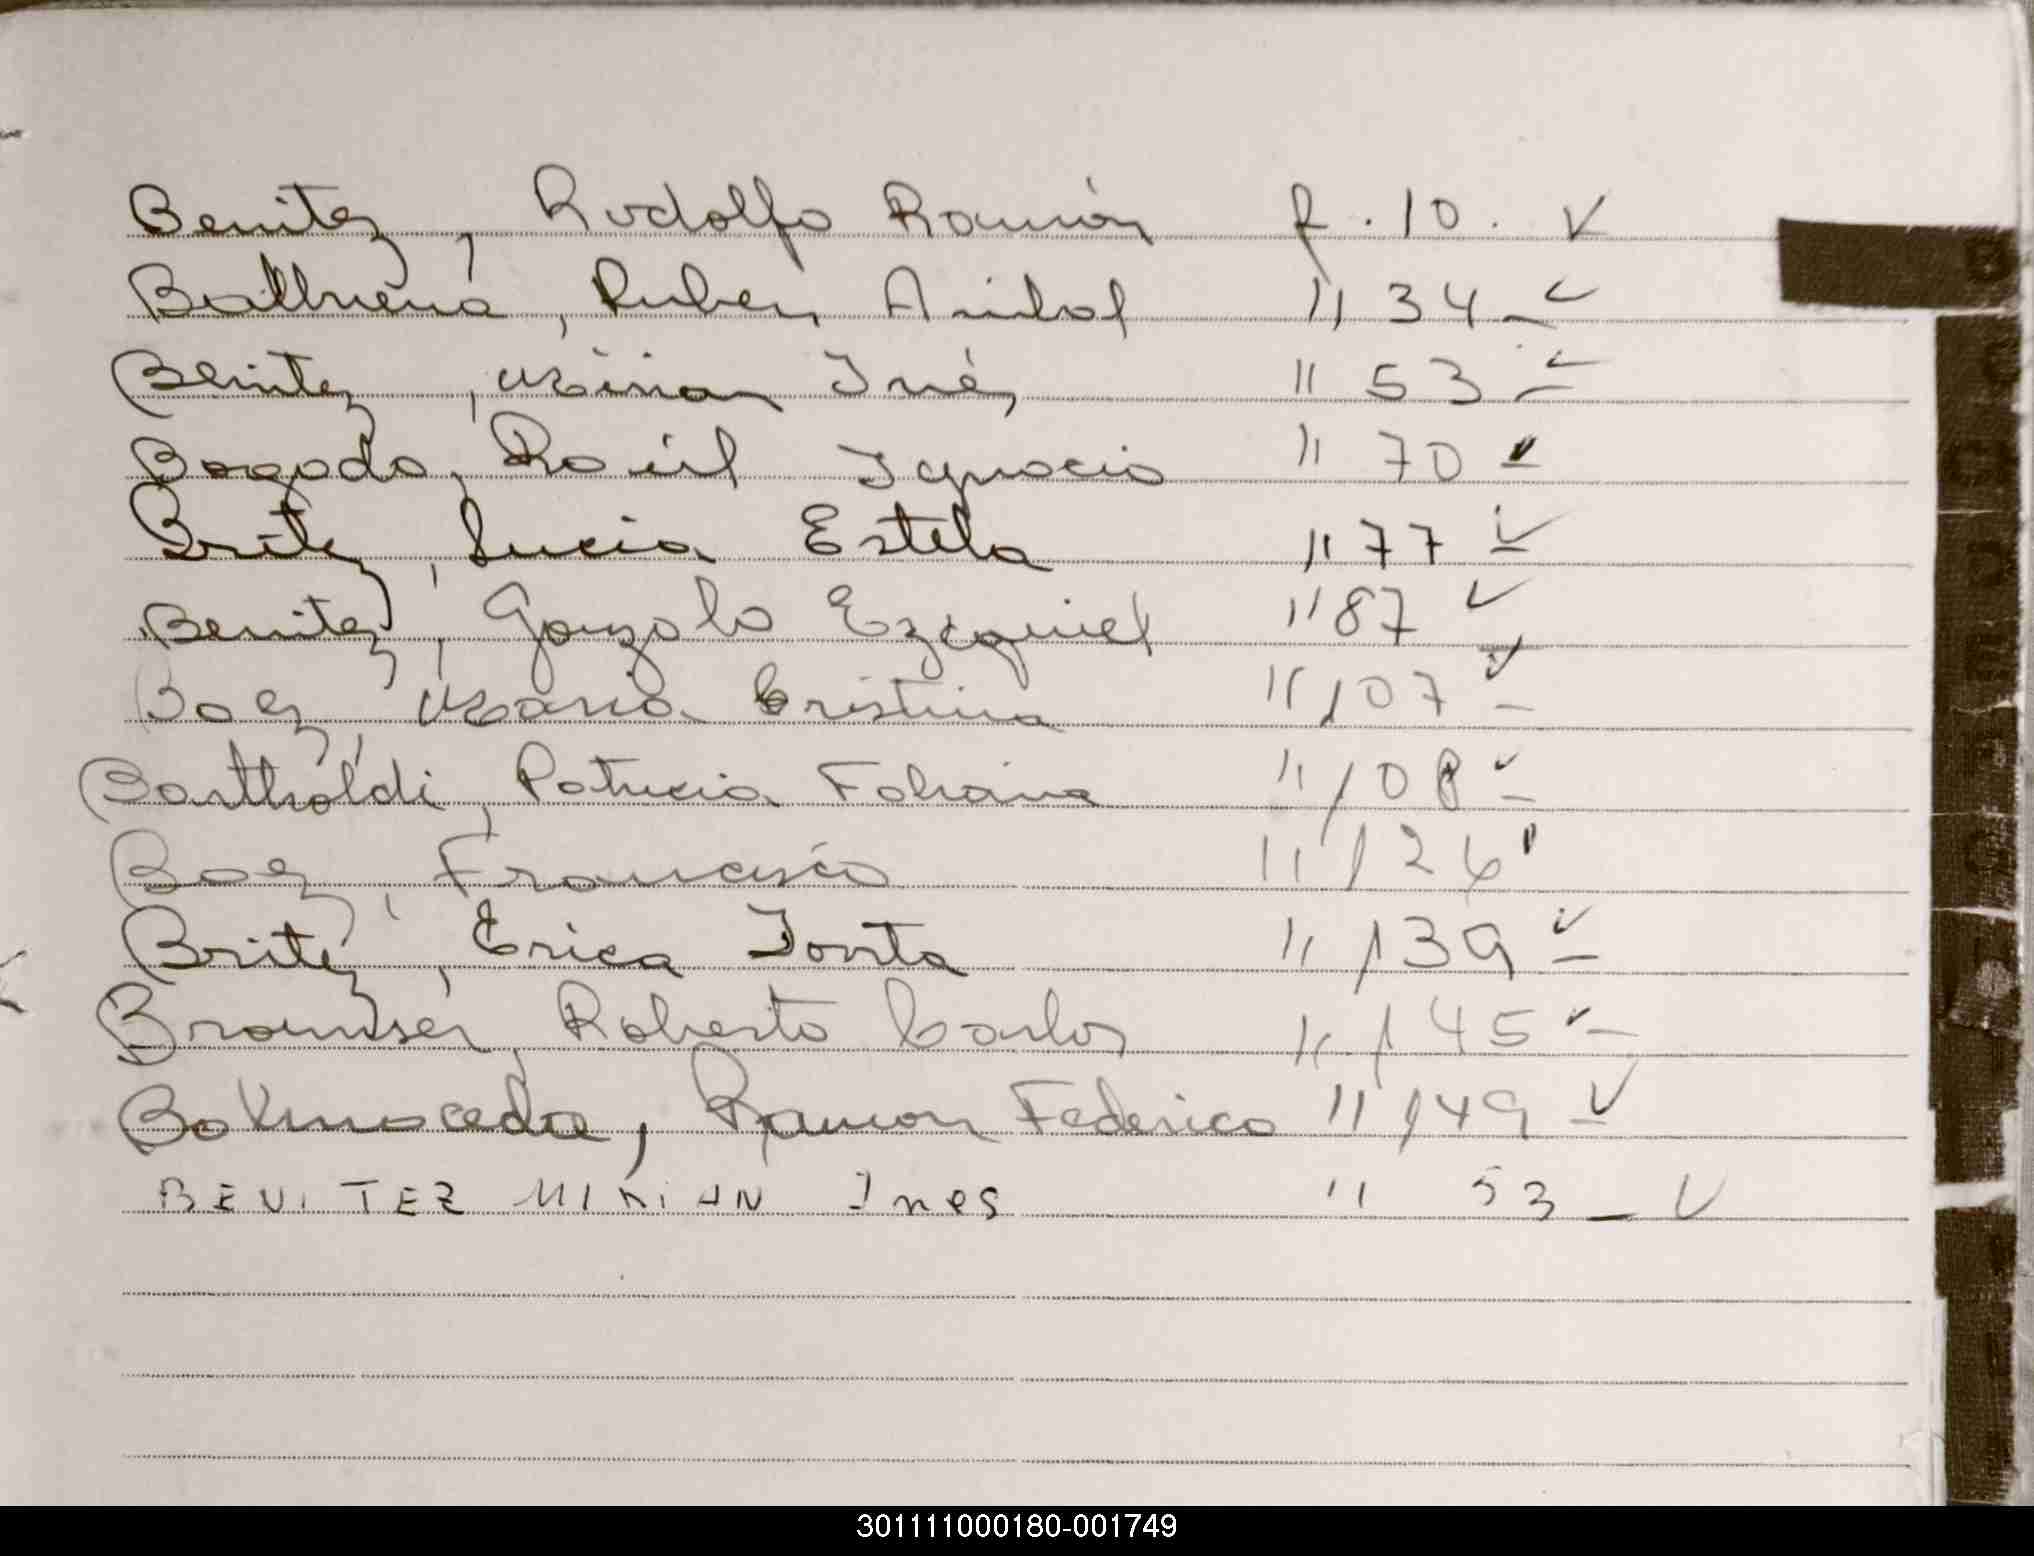 Benitez, Rodolfo Ramón f. 10. ✓
Balbuena, Ruben Anibal " 34 - ✓
Benitez, Mirian Inés " 53 - ✓
Bogado, Raúl Ignacio " 70 - ✓
Britez, Lucia Estela " 77 - ✓
Benitez, Gonzalo Ezequiel " 87 ✓
Baez, Maria Cristina " 107 - ✓
Bartholdi, Patricia Fabiana " 108 - ✓
Baez, Francisco " 126
Britez, Erica " 139 - ✓
Roberto Carlos " 145 - ✓
Balmaceda, Ramon Federico " 149 - ✓
BENITEZ MIRIAN Ines " 53 - ✓
301111000180-001749